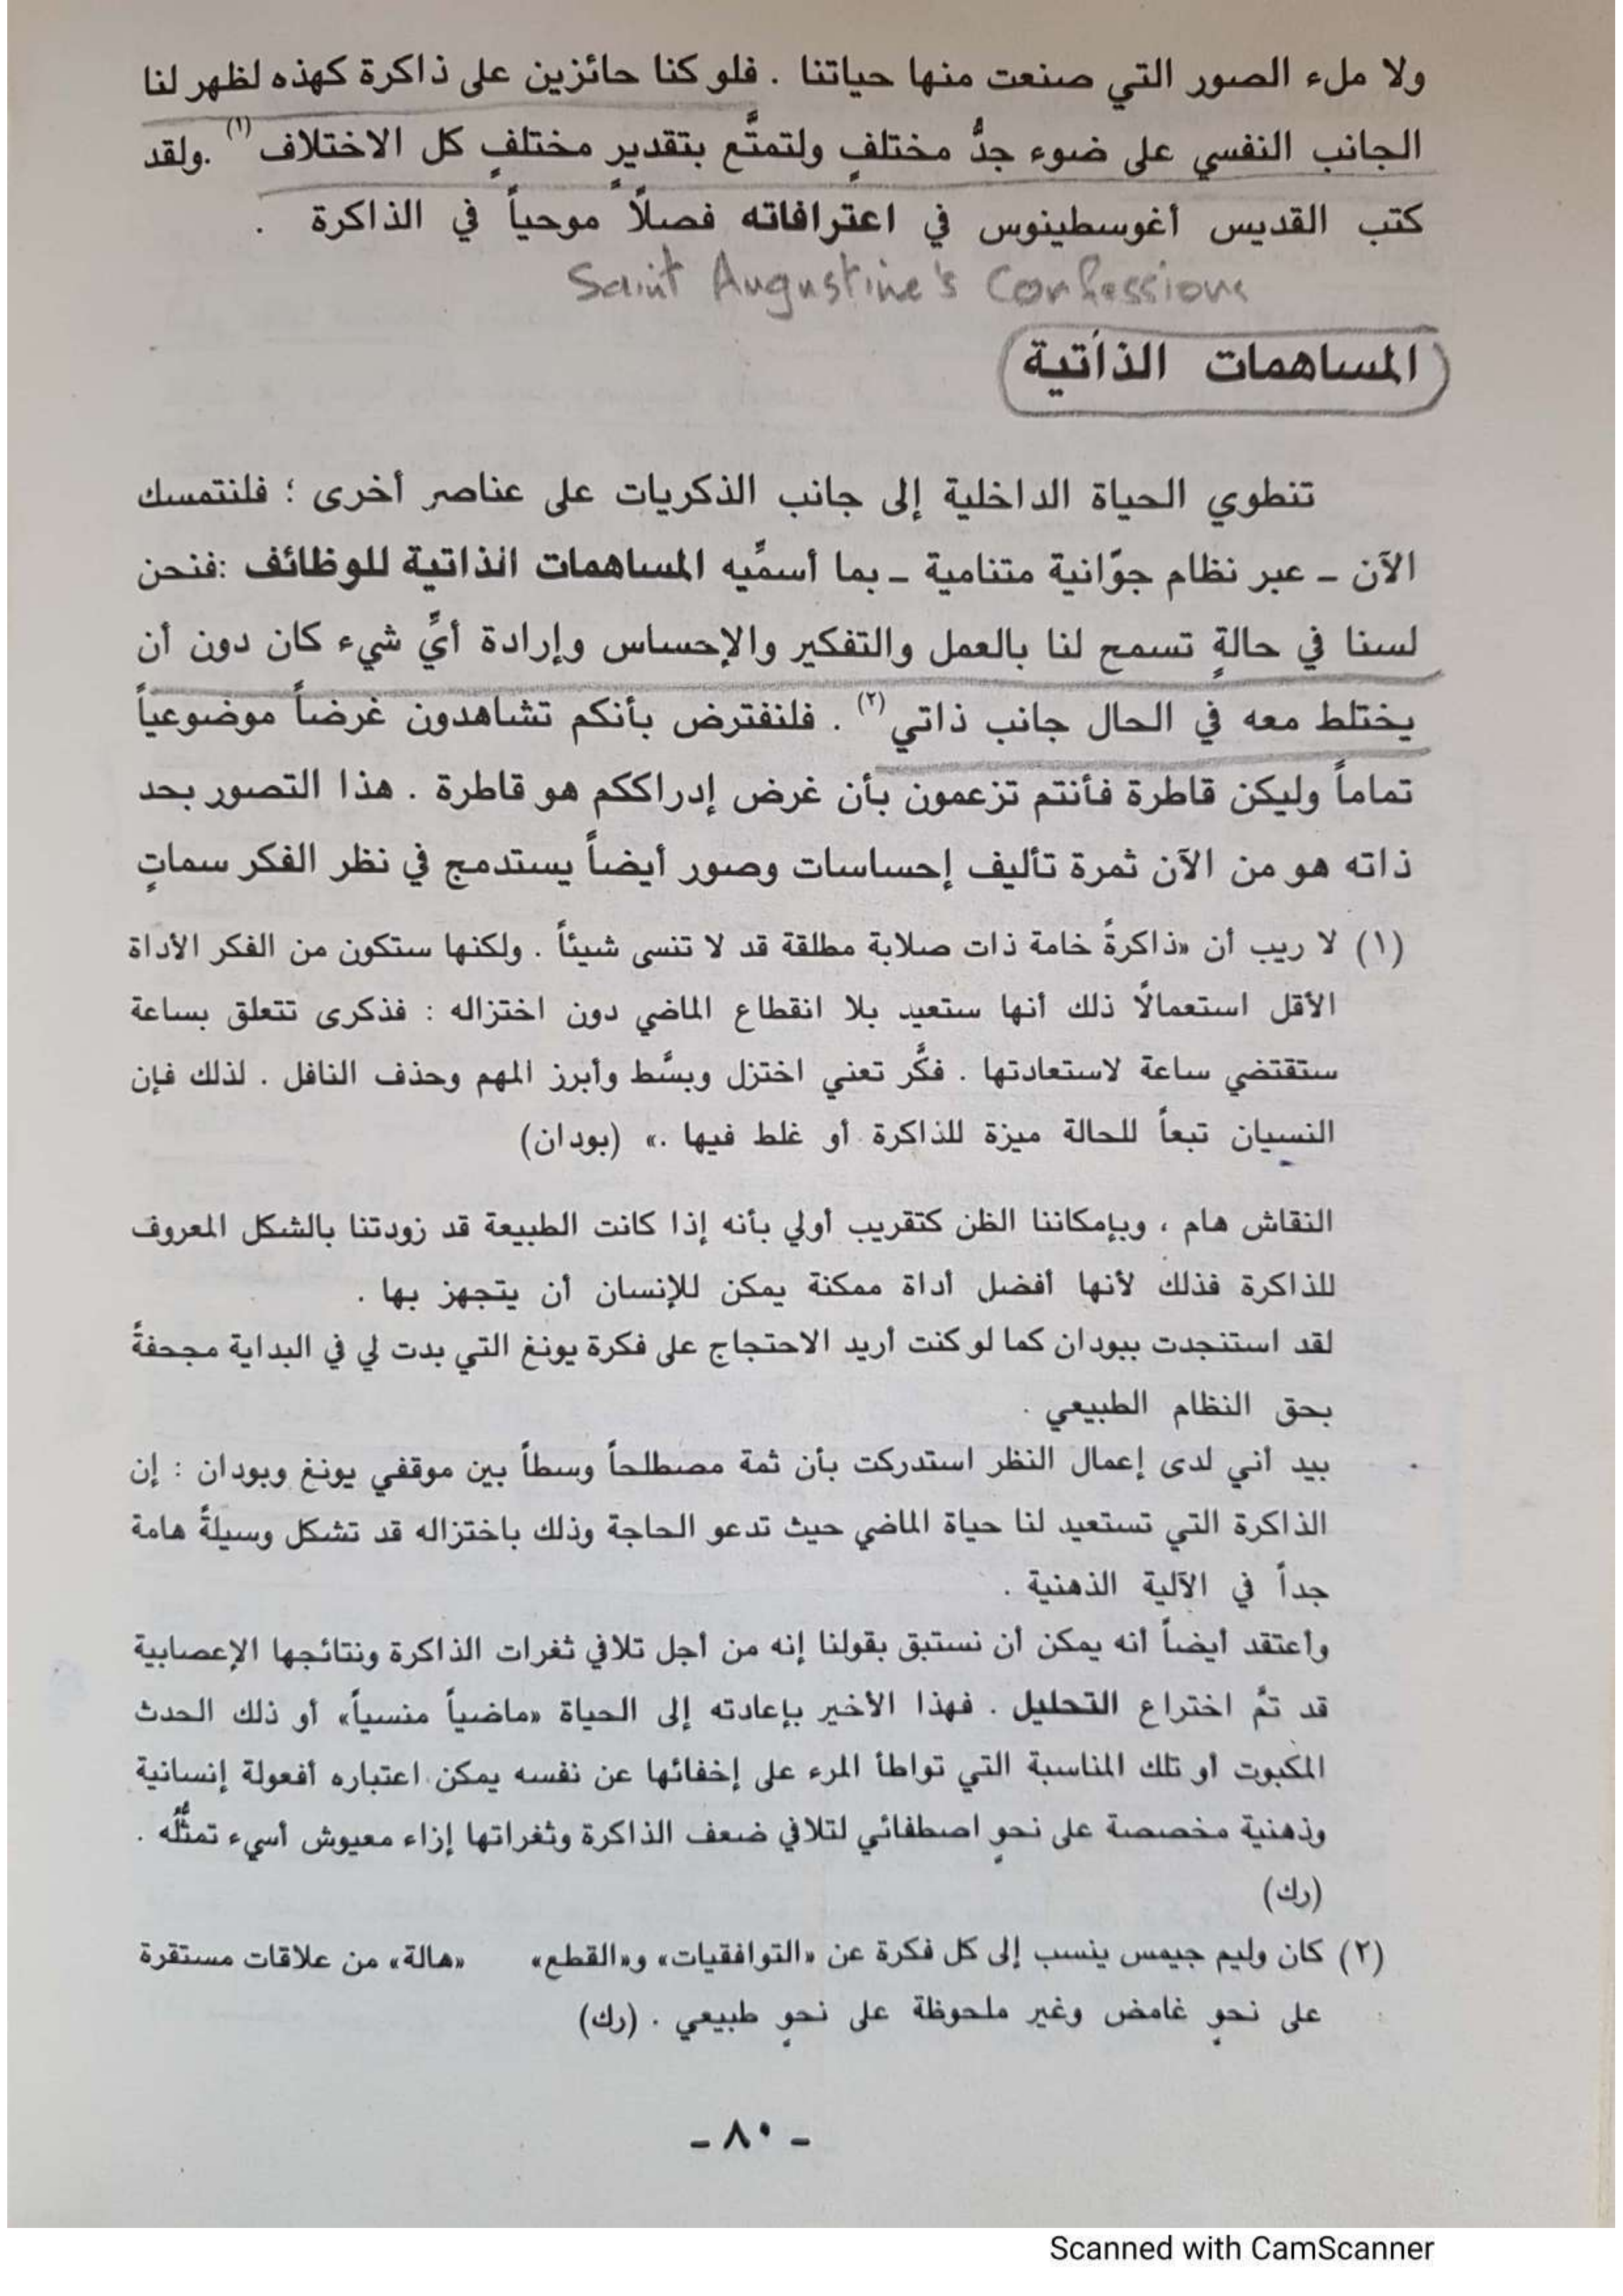 ولا ملء الصور التي صنعت منها حياتنا . فلو كنا حائزين على ذاكرة كهذه لظهر لنا
الجانب النفسي على ضوء جدُّ مختلفٍ ولتمتَّع بتقديرٍ مختلفٍ كل الاختلاف (١) .ولقد
كتب القديس أغوسطينوس في اعترافاته فصلًا موحياً في الذاكرة .
Saint Augustine's Confessions
المساهمات الذاتية
تنطوي الحياة الداخلية إلى جانب الذكريات على عناصر أخرى ؛ فلنتمسك
الآن ـ عبر نظام جوّانية متنامية ـ بما أسمِّيه المساهمات الذاتية للوظائف :فنحن
لسنا في حالةٍ تسمح لنا بالعمل والتفكير والإحساس وإرادة أيِّ شيء كان دون أن
يختلط معه في الحال جانب ذاتي (٢) . فلنفترض بأنكم تشاهدون غرضاً موضوعياً
تماماً وليكن قاطرة فأنتم تزعمون بأن غرض إدراككم هو قاطرة . هذا التصور بحد
ذاته هو من الآن ثمرة تأليف إحساسات وصور أيضاً يستدمج في نظر الفكر سماتٍ
(١) لا ريب أن «ذاكرةً خامة ذات صلابة مطلقة قد لا تنسى شيئاً . ولكنها ستكون من الفكر الأداة
الأقل استعمالًا ذلك أنها ستعيد بلا انقطاع الماضي دون اختزاله : فذكرى تتعلق بساعة
ستقتضي ساعة لاستعادتها . فكَّر تعني اختزل وبسَّط وأبرز المهم وحذف النافل . لذلك فإن
النسيان تبعاً للحالة ميزة للذاكرة أو غلط فيها .» (بودان)
النقاش هام ، وبإمكاننا الظن كتقريب أولي بأنه إذا كانت الطبيعة قد زودتنا بالشكل المعروف
للذاكرة فذلك لأنها أفضل أداة ممكنة يمكن للإنسان أن يتجهز بها .
لقد استنجدت ببودان كما لو كنت أريد الاحتجاج على فكرة يونغ التي بدت لي في البداية مجحفةً
بحق النظام الطبيعي .
بيد أني لدى إعمال النظر استدركت بأن ثمة مصطلحاً وسطاً بين موقفي يونغ وبودان : إن
الذاكرة التي تستعيد لنا حياة الماضي حيث تدعو الحاجة وذلك باختزاله قد تشكل وسيلةً هامة
جداً في الآلية الذهنية .
وأعتقد أيضاً أنه يمكن أن نستبق بقولنا إنه من أجل تلافي ثغرات الذاكرة ونتائجها الإعصابية
قد تمَّ اختراع التحليل . فهذا الأخير بإعادته إلى الحياة «ماضياً منسياً» أو ذلك الحدث
المكبوت أو تلك المناسبة التي تواطأ المرء على إخفائها عن نفسه يمكن اعتباره أفعولة إنسانية
وذهنية مخصصة على نحوٍ اصطفائي لتلافي ضعف الذاكرة وثغراتها إزاء معيوش أسيء تمثُّله .
(رك)
(٢) كان وليم جيمس ينسب إلى كل فكرة عن «التوافقيات» و«القطع» «هالة» من علاقات مستقرة
على نحوٍ غامض وغير ملحوظة على نحوٍ طبيعي . (رك)
ـ ٨٠ ـ
Scanned with CamScanner